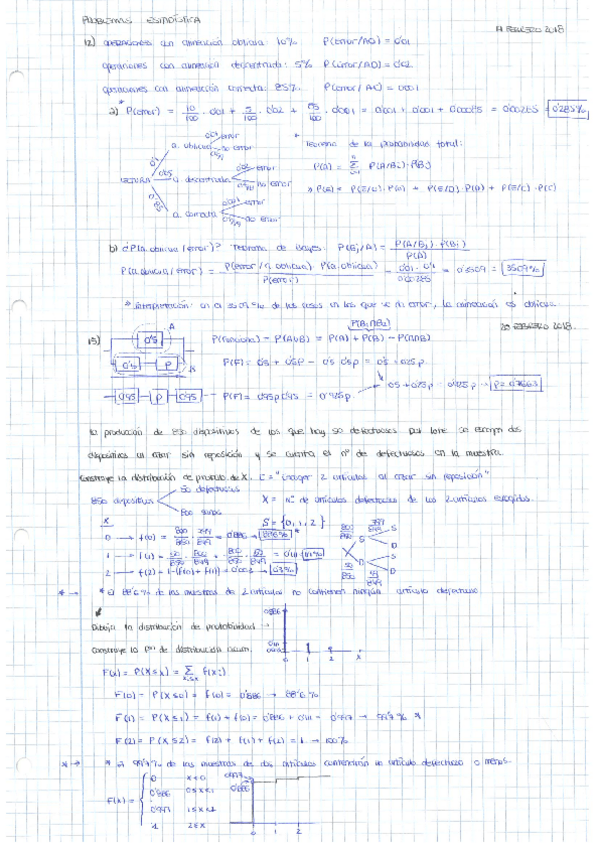 PROBLEMAS ESTADÍSTICA
19 FEBRERO 2018
12) operaciones con alineación oblicua 10% P(error/AO) = 0'01
operaciones con alineación descentrada: 5% P(error/AD) = 0'02
operaciones con alineación correcta: 85% P(error/AC) = 0'001
a) P(error) = 10/100 · 0'01 + 5/100 · 0'02 + 85/100 · 0'001 = 0'001 + 0'001 + 0'00085 = 0'00285 = 0'285%
* Teorema de la probabilidad total:
LECTURA
0'1 a. oblicua 0'01 error 0'99 no error
0'05 a. descentrada 0'02 error no error
0'85 a. correcta 0'001 error no error
b) ¿P(a. oblicua/error)? Teorema de Bayes: P(Bj/A) = P(A/Bj)·P(Bj) / P(A)
P(a. oblicua/error) = P(error/a. oblicua) · P(a. oblicua) / P(error) = 0'01 · 0'1 / 0'00285 = 0'3509 = 35'09%
* Interpretación: en el 35'09% de los casos en los que se da error, la alineación es oblicua
20 FEBRERO 2018.
15) P(funcione) = P(A∪B) = P(A) + P(B) - P(A∩B)
P(F) = 0'5 + 0'5p - 0'5 · 0'5p = 0'5 + 0'25p
0'95 p 0'95 P(F) = 0'95p0'95 = 0'925p
0'5 + 0'25p = 0'925p
La producción de 850 dispositivos de los que hay 50 defectuosos por lote se escogen dos
dispositivos al azar sin reposición y se cuenta el nº de defectuosos en la muestra.
Construye la distribución de probab. de X. E = "Escoger 2 artículos al azar sin reposición"
850 dispositivos 50 defectuosos 800 buenos
X = Nº de artículos defectuosos de los 2 artículos escogidos.
X S = {0, 1, 2}
0 → f(0) = 800/850 · 799/849 = 0'886 → 88'6% *
1 → f(1) = 50/850 · 800/849 + 800/850 · 50/849 = 0'111 → 11'1%
2 → f(2) = 1 - (f(0) + f(1)) = 0'003 → 0'3%
* → * el 88'6% de las muestras de 2 artículos no contienen ningún artículo defectuoso
Dibuja la distribución de probabilidad →
Construye la fⁿ de distribución acum.
F(x) = P(X≤x) = Σ f(xi)
F(0) = P(X≤0) = f(0) = 0'886 → 88'6%
F(1) = P(X≤1) = f(1) + f(0) = 0'886 + 0'111 = 0'997 → 99'7% *
F(2) = P(X≤2) = f(2) + f(1) + f(0) = 1 → 100%
* → * el 99'7% de las muestras de dos artículos contendrán un artículo defectuoso o menos.
F(x) =
0 x<0
0'886 0≤x<1
0'997 1≤x<2
1 2≤x
0 1 2